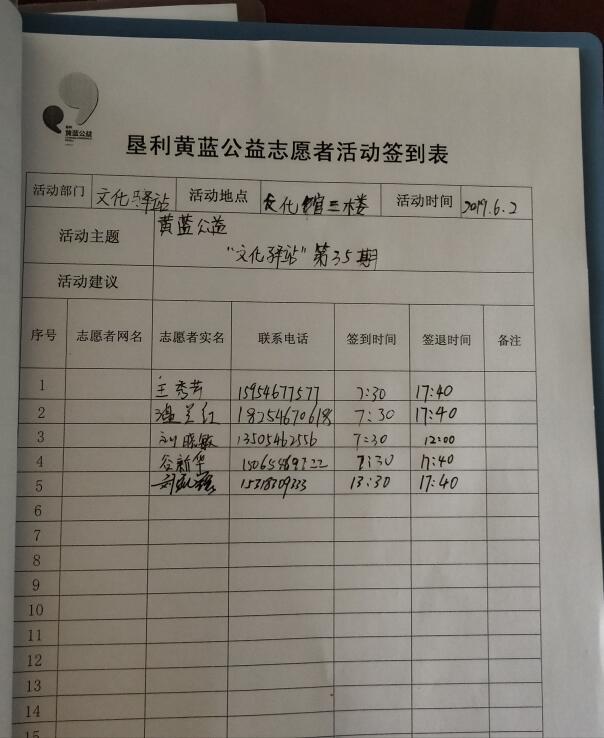 黄蓝公益
垦利黄蓝公益志愿者活动签到表
活动部门 文化驿站 活动地点 文化馆三楼 活动时间 2019.6.2
活动主题 黄蓝公益
“文化驿站”第35期
活动建议
序号 志愿者网名 志愿者实名 联系电话 签到时间 签退时间 备注
1 王秀芸 15954677577 7:30 17:40
2 兰红 18254670618 7:30 17:40
3 刘晓敏 13505462556 7:30 12:00
4 谷新华 7:30 17:40
5 13:30 17:40
6
7
8
9
10
11
12
13
14
15